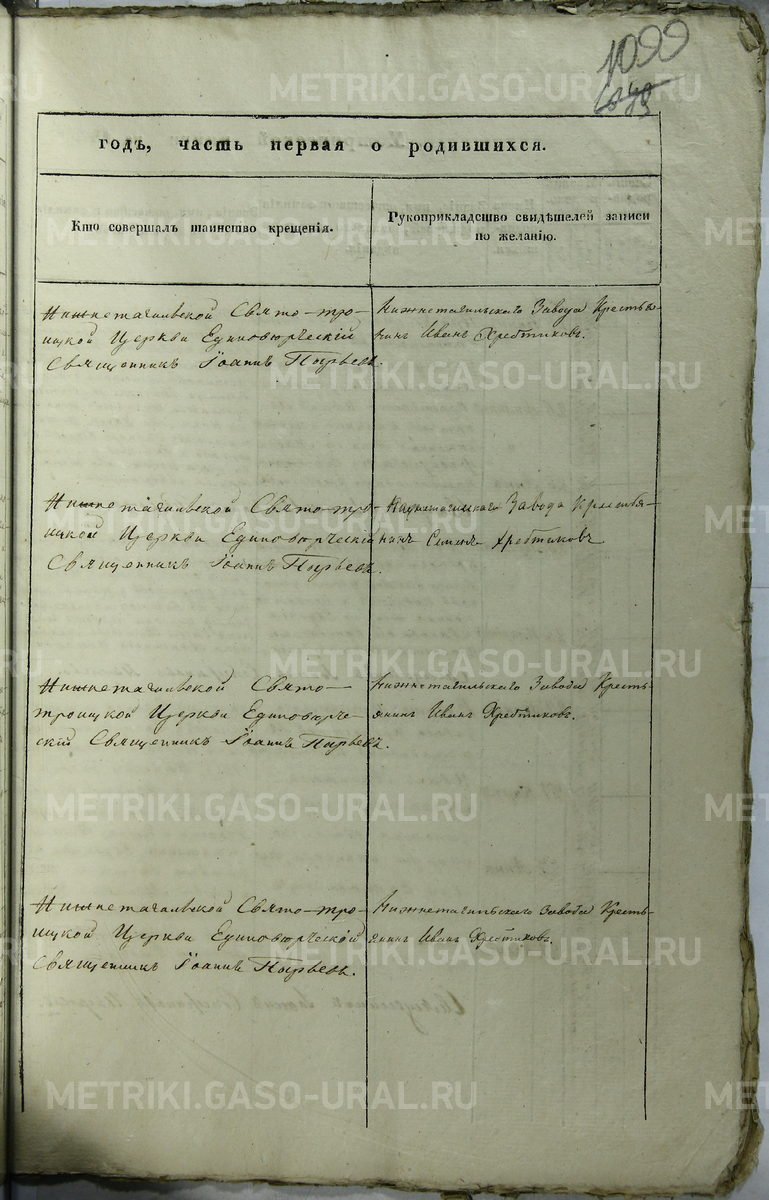 1099
годъ, часть первая о родившихся.
Кто совершалъ таинство крещенія.
Рукоприкладство свидѣтелей записи
по желанію.
Нижнетагильской Свято-тро-
ицкой Церкви Единовѣрческій
Священникъ Іоаннъ Пырьевъ.
Нижнетагильскаго Завода Кресть-
янинъ Иванъ Хребтиковъ.
Нижнетагильской Свято-тро-
ицкой Церкви Единовѣрческій
Священникъ Іоаннъ Пырьевъ.
Нижнетагильскаго Завода Крестья-
нинъ Семенъ Хребтиковъ
Нижнетагильской Свято-
троицкой Церкви Единовѣрче-
скій Священникъ Іоаннъ Пырьевъ.
Нижнетагильскаго Завода Кресть-
янинъ Иванъ Хребтиковъ.
Нижнетагильской Свято-тро-
ицкой Церкви Единовѣрческій
Священникъ Іоаннъ Пырьевъ.
Нижнетагильскаго Завода Кресть-
янинъ Иванъ Хребтиковъ.
METRIKI.GASO-URAL.RU